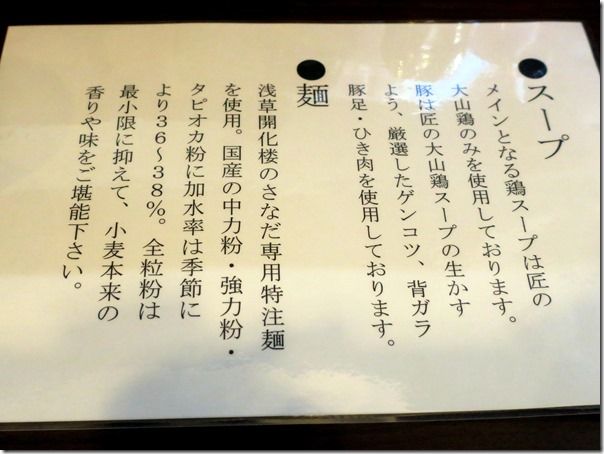 ●スープ
メインとなる鶏スープは匠の
大山鶏のみを使用しております。
豚は匠の大山鶏スープの生かす
よう、厳選したゲンコツ、背ガラ
豚足・ひき肉を使用しております。
●麺
浅草開化楼のさなだ専用特注麺
を使用。国産の中力粉・強力粉・
タピオカ粉に加水率は季節に
より36〜38%。全粒粉は
最小限に抑えて、小麦本来の
香りや味をご堪能下さい。